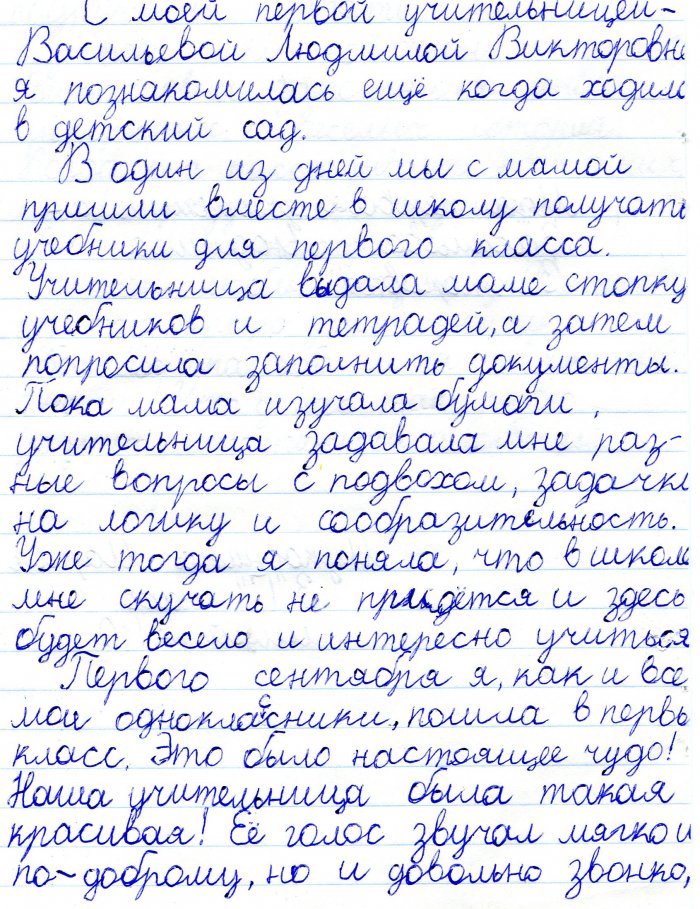 С моей первой учительницей –
Васильевой Людмилой Викторовне
я познакомилась ещё когда ходила
в детский сад.
В один из дней мы с мамой
пришли вместе в школу получать
учебники для первого класса.
Учительница выдала маме стопку
учебников и тетрадей, а затем
попросила заполнить документы.
Пока мама изучала бумаги,
учительница задавала мне раз-
ные вопросы с подвохом, задачки
на логику и сообразительность.
Уже тогда я поняла, что в школе
мне скучать не придётся и здесь
будет весело и интересно учиться
Первого сентября я, как и все
мои одноклассники, пошла в первы
класс. Это было настоящее чудо!
Наша учительница была такая
красивая! Её голос звучал мягко и
по-доброму, но и довольно звонко,